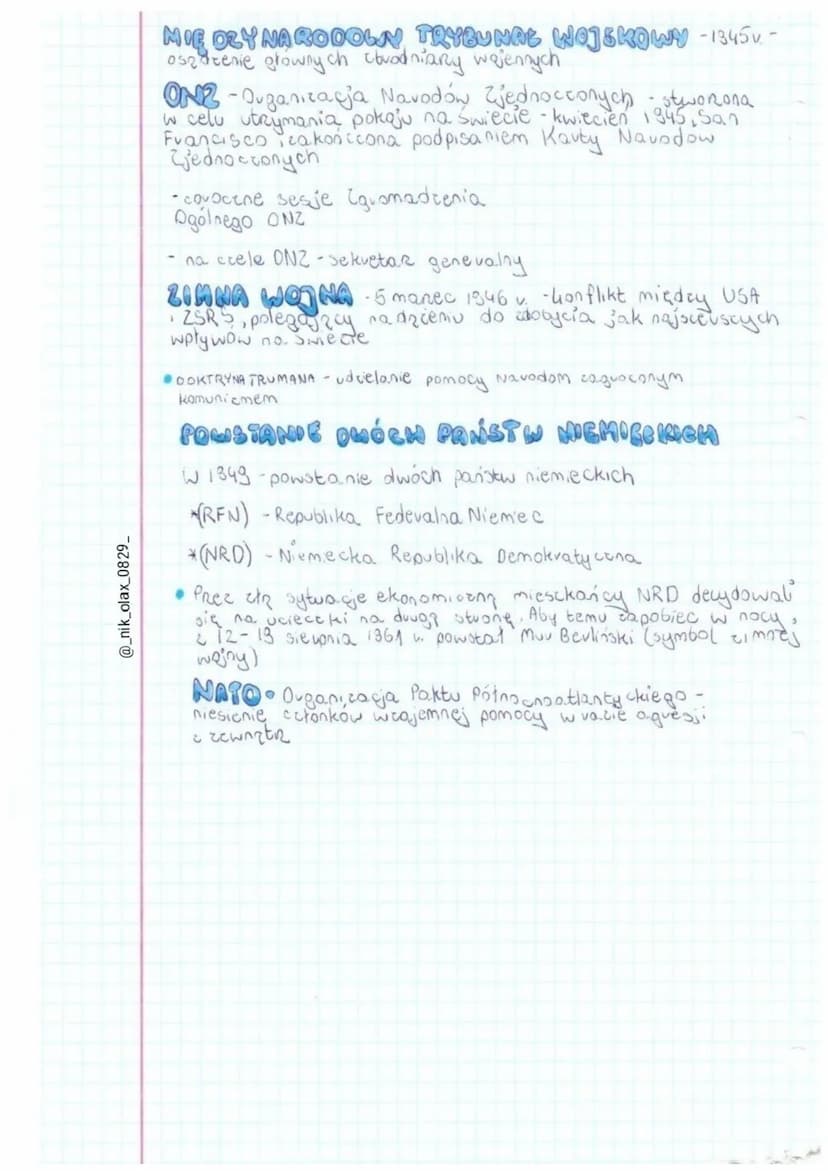 MIĘDZYNARODOWY TRYBUNAŁ WOJSKOWY - 1945r. -
osądzenie głównych zbrodniarzy wojennych
ONZ - Organizacja Narodów Zjednoczonych - stworzona
w celu utrzymania pokoju na świecie - kwiecień 1945, San
Francisco, zakończona podpisaniem Karty Narodów
Zjednoczonych
- coroczne sesje Zgromadzenia
Ogólnego ONZ
- na czele ONZ - sekretarz generalny
ZIMNA WOJNA - 5 marzec 1946 r. - konflikt między USA
i ZSRS, polegający na dążeniu do zdobycia jak najszerszych
wpływów na świecie
• DOKTRYNA TRUMANA - udzielanie pomocy narodom zagrożonym
komunizmem
POWSTANIE DWÓCH PAŃSTW NIEMIECKICH
W 1949 - powstanie dwóch państw niemieckich
*(RFN) - Republika Federalna Niemiec
*(NRD) - Niemiecka Republika Demokratyczna
• Przez złą sytuację ekonomiczną mieszkańcy NRD decydowali
się na ucieczki na drugą stronę. Aby temu zapobiec w nocy
z 12-13 sierpnia 1961 r. powstał Mur Berliński (symbol zimnej
wojny)
NATO • Organizacja Paktu Północnoatlantyckiego -
niesienie członków wzajemnej pomocy w razie agresji
z zewnątrz
@_nik_olax_0829_